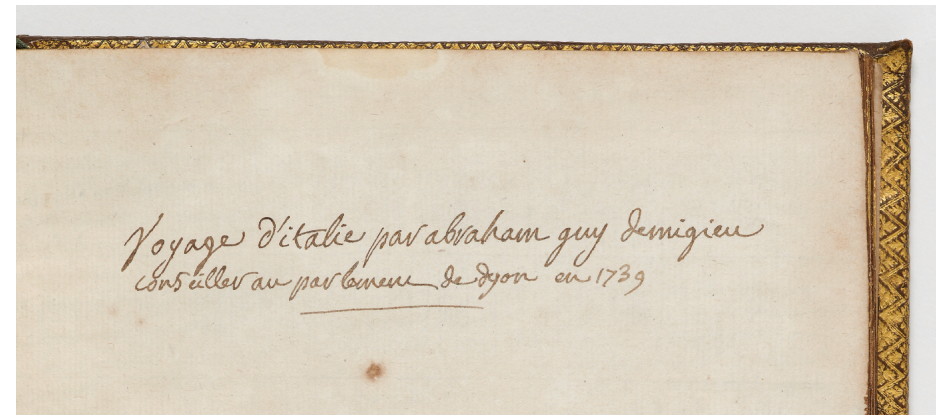 Voyage d'italie par abraham guy demigieu
conseiller au parlement de dyon en 1739